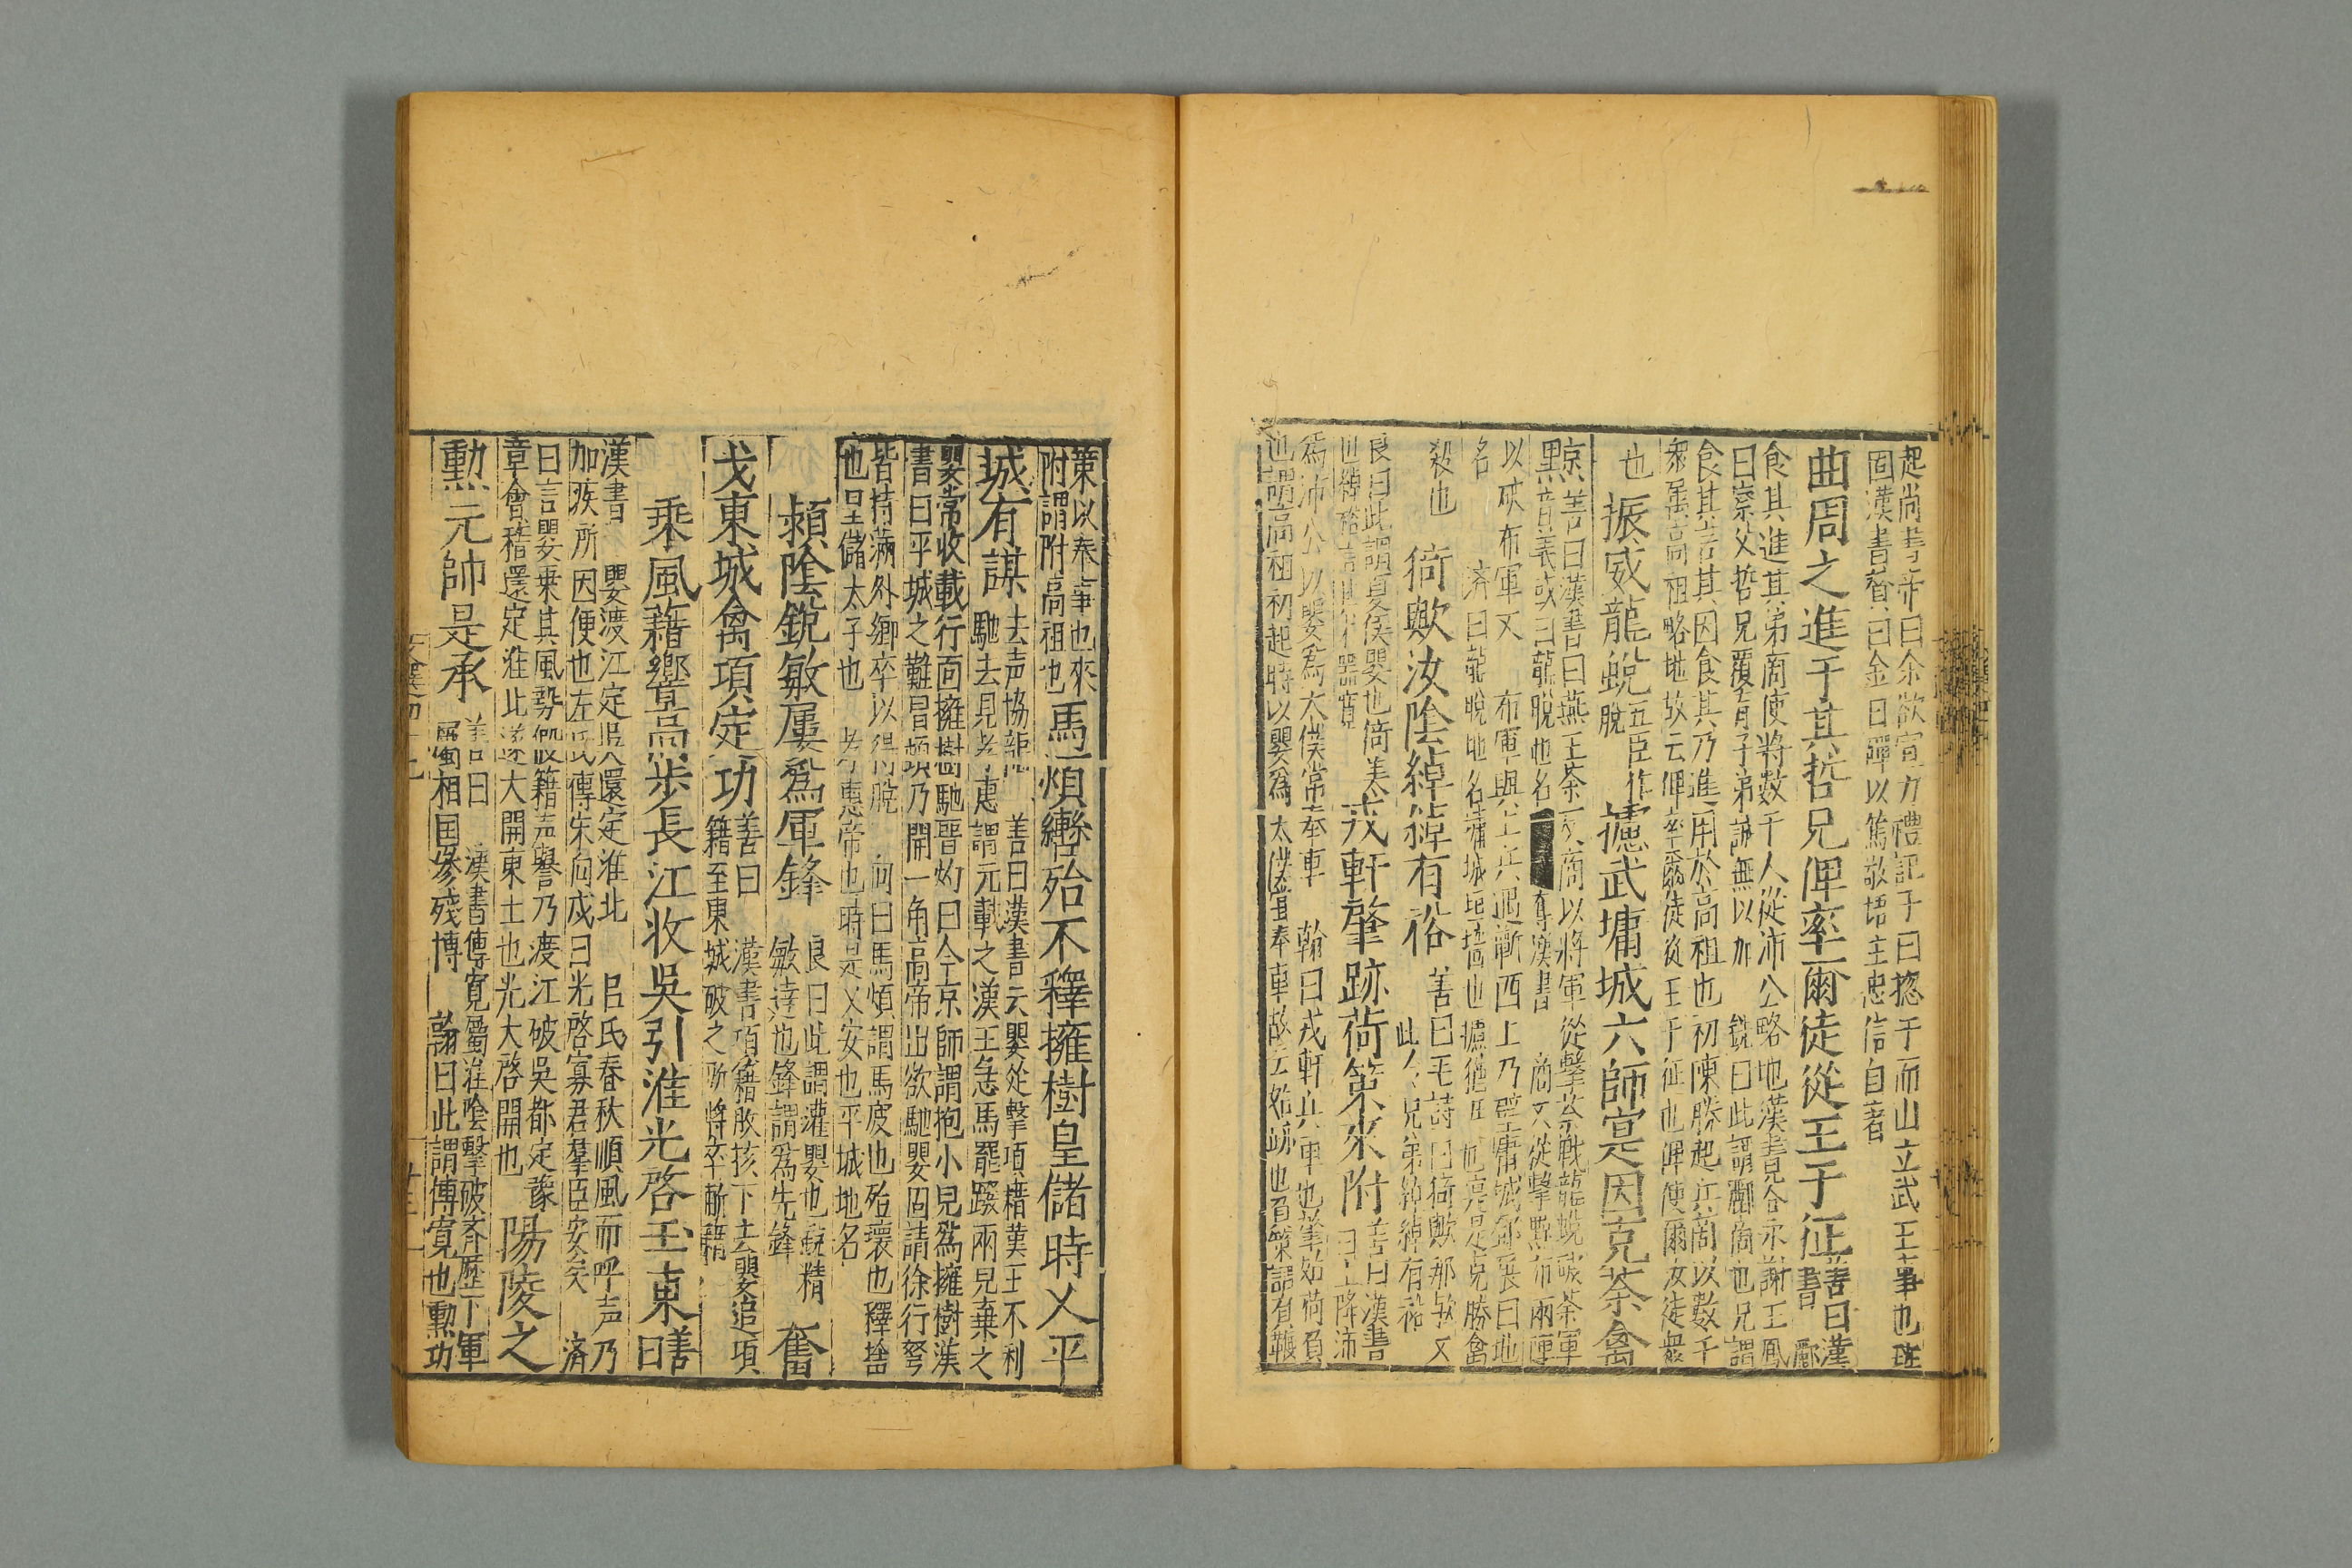 起尚書帝曰余欲宣力禮記子曰揔干而山立武王事也班
固漢書賛曰金日磾以篤敬悟主忠信自著
曲周之進于其哲兄俾率爾徒從王于征善曰漢書酈
食其進其弟商使將數千人從沛公略地漢書
曰察父哲兄覆育子弟誠無以加 銑曰此謂酈商也兄謂
食其言其因食其乃進用於高祖也初陳勝起兵商以數千
衆屬高祖略地故云俾率爾徒從王于征也俾使爾汝徒衆
也 振威龍蛻五臣作脫攄武墉城六師寔因克荼禽
黥善曰漢書曰燕王荼反商以將軍從擊荼戰龍蛻破荼軍
音義或曰龍脫地名 漢書 商又從擊黥布兩陣
以破布軍又 布軍與上兵遇蘄西上乃壁庸城鄧展曰地
名 濟曰龍脫地名墉城垣墻也 寔是克勝禽
殺也 猗歟汝陰綽綽有裕善曰毛詩曰猗歟那歟又
此令兄弟綽綽有裕
良曰此謂夏侯嬰也猗美 戎軒肇跡荷策來附善曰漢書曰上降沛
爲沛公以嬰爲太僕常奉車 翰曰戎軒兵車也肇始荷負
也謂高祖初起時以嬰爲太僕官奉車故云始跡也負策謂有鞭
策以奉事也來
附謂附高祖也馬煩轡殆不釋擁樹皇儲時乂平
城有謀去声協韻 善曰漢書云嬰從擊項籍漢王不利
馳去見孝惠 謂元載之漢王急馬罷蹳兩兒棄之
嬰常收載行面擁樹馳晉灼曰今京師謂抱小兒爲擁樹漢
書曰平城之難冒頓乃開一角高帝出欲馳嬰固請徐行弩
皆持滿外鄉卒以得脫 向曰馬煩謂馬疲也殆壞也釋捨
也皇儲太子也 孝惠帝也時是乂安也平城地名
潁陰銳敏屢爲軍鋒良曰此謂灌嬰也銳精
敏達也鋒謂爲先鋒奮
戈東城禽項定功善曰 漢書項籍敗垓下去嬰追項
籍至東城破之所將卒斬籍
乘風藉響高步長江收吳引淮光啓于東善曰
漢書 嬰渡江定吳還定淮北 呂氏春秋順風而呼声乃
加疾所因便也左氏傳宋向戌曰光啓寡君羣臣安矣 濟
曰言嬰乗其風勢假籍声譽乃渡江破吳都定豫
章會稽還定淮北遂大開東土也光大啓開也陽陵之
勳元帥是承善曰 漢書傳寬屬淮陰擊破齊歷下軍
屬相国參殘博 翰曰此謂傅寬也勲功